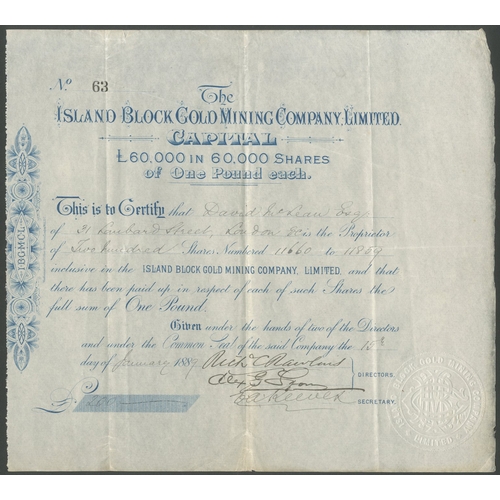 No. 63
The
ISLAND BLOCK GOLD MINING COMPANY, LIMITED.
CAPITAL
£60,000 IN 60,000 SHARES
of One Pound each.
This is to Certify that David McLean Esq
of 31 Lombard Street, London EC is the Proprietor
of Two hundred Shares Numbered 11660 to 11859
inclusive in the ISLAND BLOCK GOLD MINING COMPANY, LIMITED, and that
there has been paid up in respect of each of such Shares the
full sum of One Pound.
Given under the hands of two of the Directors
and under the Common Seal of the said Company the 15th
day of January 1889
DIRECTORS.
SECRETARY.
£200
IBGMCL
LIMITED